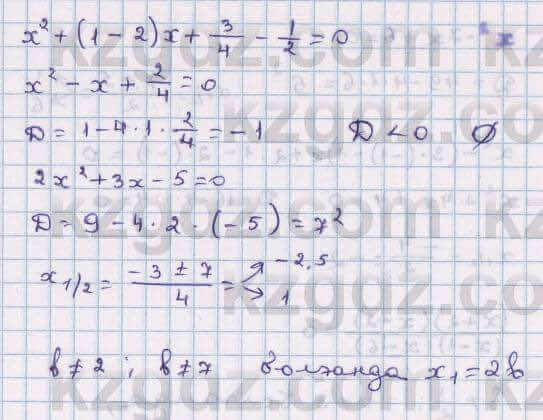 x² + (1 - 2)x + 3/4 - 1/2 = 0
x² - x + 2/4 = 0
D = 1 - 4 · 1 · 2/4 = -1 D < 0 ∅
2x² + 3x - 5 = 0
D = 9 - 4 · 2 · (-5) = 7²
x 1/2 = (-3 ± 7)/4 = -2,5
1
b ≠ 2 ; b ≠ 7 болғанда x₁ = 2b
kzgdz.com